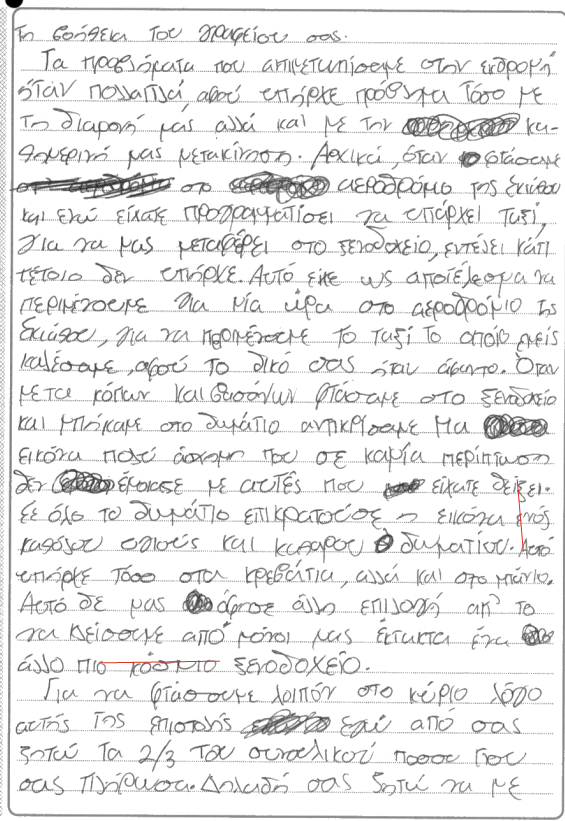 τη βοήθεια του γραφείου σας.
Τα προβλήματα που αντιμετωπίσαμε στην εκδρομή
ήταν πολλαπλά, αφού υπήρχε πρόβλημα τόσο με
τη διαμονή μας αλλά και με την κα-
θημερινή μας μετακίνηση. Αρχικά, όταν φτάσαμε
στο αεροδρόμιο της Σκιάθου
και ενώ είχατε προγραμματίσει να υπάρχει ταξί,
για να μας μεταφέρει στο ξενοδοχείο, εντέλει κάτι
τέτοιο δεν υπήρχε. Αυτό είχε ως αποτέλεσμα να
περιμένουμε για μία ώρα στο αεροδρόμιο της
Σκιάθου, για να περιμένουμε το ταξί το οποίο εμείς
καλέσαμε, αφού το δικό σας ήταν άφαντο. Όταν
μετα κόπων και βασάνων φτάσαμε στο ξενοδοχείο
και μπήκαμε στο δωμάτιο αντικρίσαμε μια
εικόνα πολύ άσχημη που σε καμία περίπτωση
δεν έμοιαζε με αυτές που είχατε δείξει.
Σε όλο το δωμάτιο επικρατούσε η εικόνα ενός
καθόλου υγιούς και καθαρου δωματίου. Αυτό
υπήρχε τόσο στα κρεβάτια, αλλά και στο μπάνιο.
Αυτό δε μας άφησε άλλη επιλογή απ' το
να κλείσουμε από μόνοι μας έκτακτα ένα
άλλο πιο κόσμιο ξενοδοχείο.
Για να φτάσουμε λοιπόν στο κύριο λόγο
αυτής της επιστολής εγώ από σας
ζητώ τα 2/3 του συνολικού ποσου που
σας πλήρωσα. Δηλαδή σας ζητώ να με